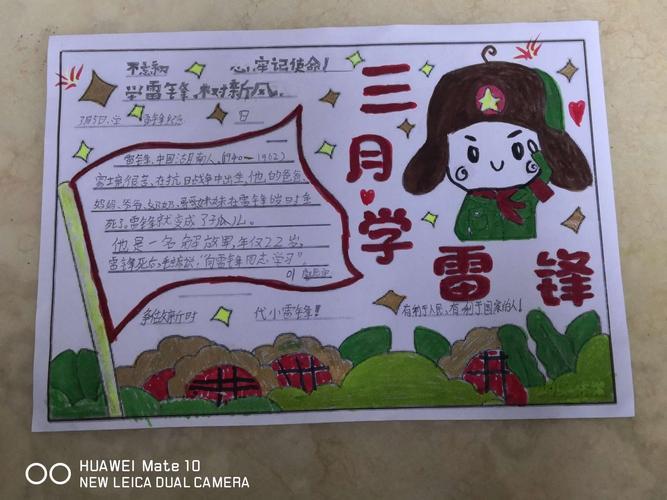 不忘初 心,牢记使命!
学雷锋,树新风。
3月5日,学 雷锋纪念 日
雷锋,中国湖南人,(1940～1962)
雷锋很苦,在抗日战争中出生,他的爸爸、
妈妈、爷爷、奶奶、哥哥妹妹在雷锋 岁时
死了,雷锋就变成了孤儿。
他是一名解放军,年仅22岁,
雷锋死后,毛 说,"向雷锋同志学习"。
争做新时 代小雷锋!
三月学
雷锋
有利于人民,有利于国家的人!
HUAWEI Mate 10
NEW LEICA DUAL CAMERA